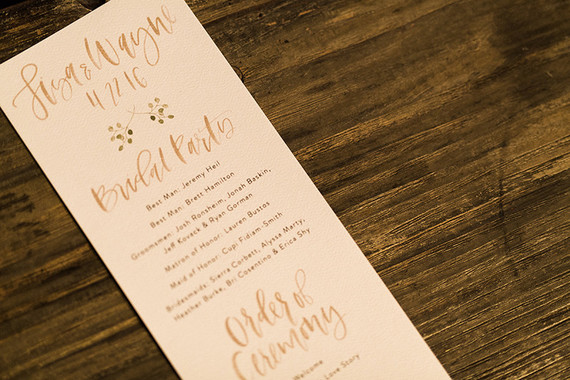 Lisa & Wayne
11.22.16
Bridal Party
Best Man: Jeremy Heil
Best Man: Brett Hamilton
Groomsmen: Josh Ronsheim, Jonah Baskin,
Jeff Kovsek & Ryan Gorman
Matron of Honor: Lauren Bustos
Maid of Honor: Cupi Fidiam Smith
Bridesmaids: Sierra Corbett, Alyssa Marty,
Heather Burke, Bri Cosentino & Erica Shy
Order of
Ceremony
Welcome
Love Story